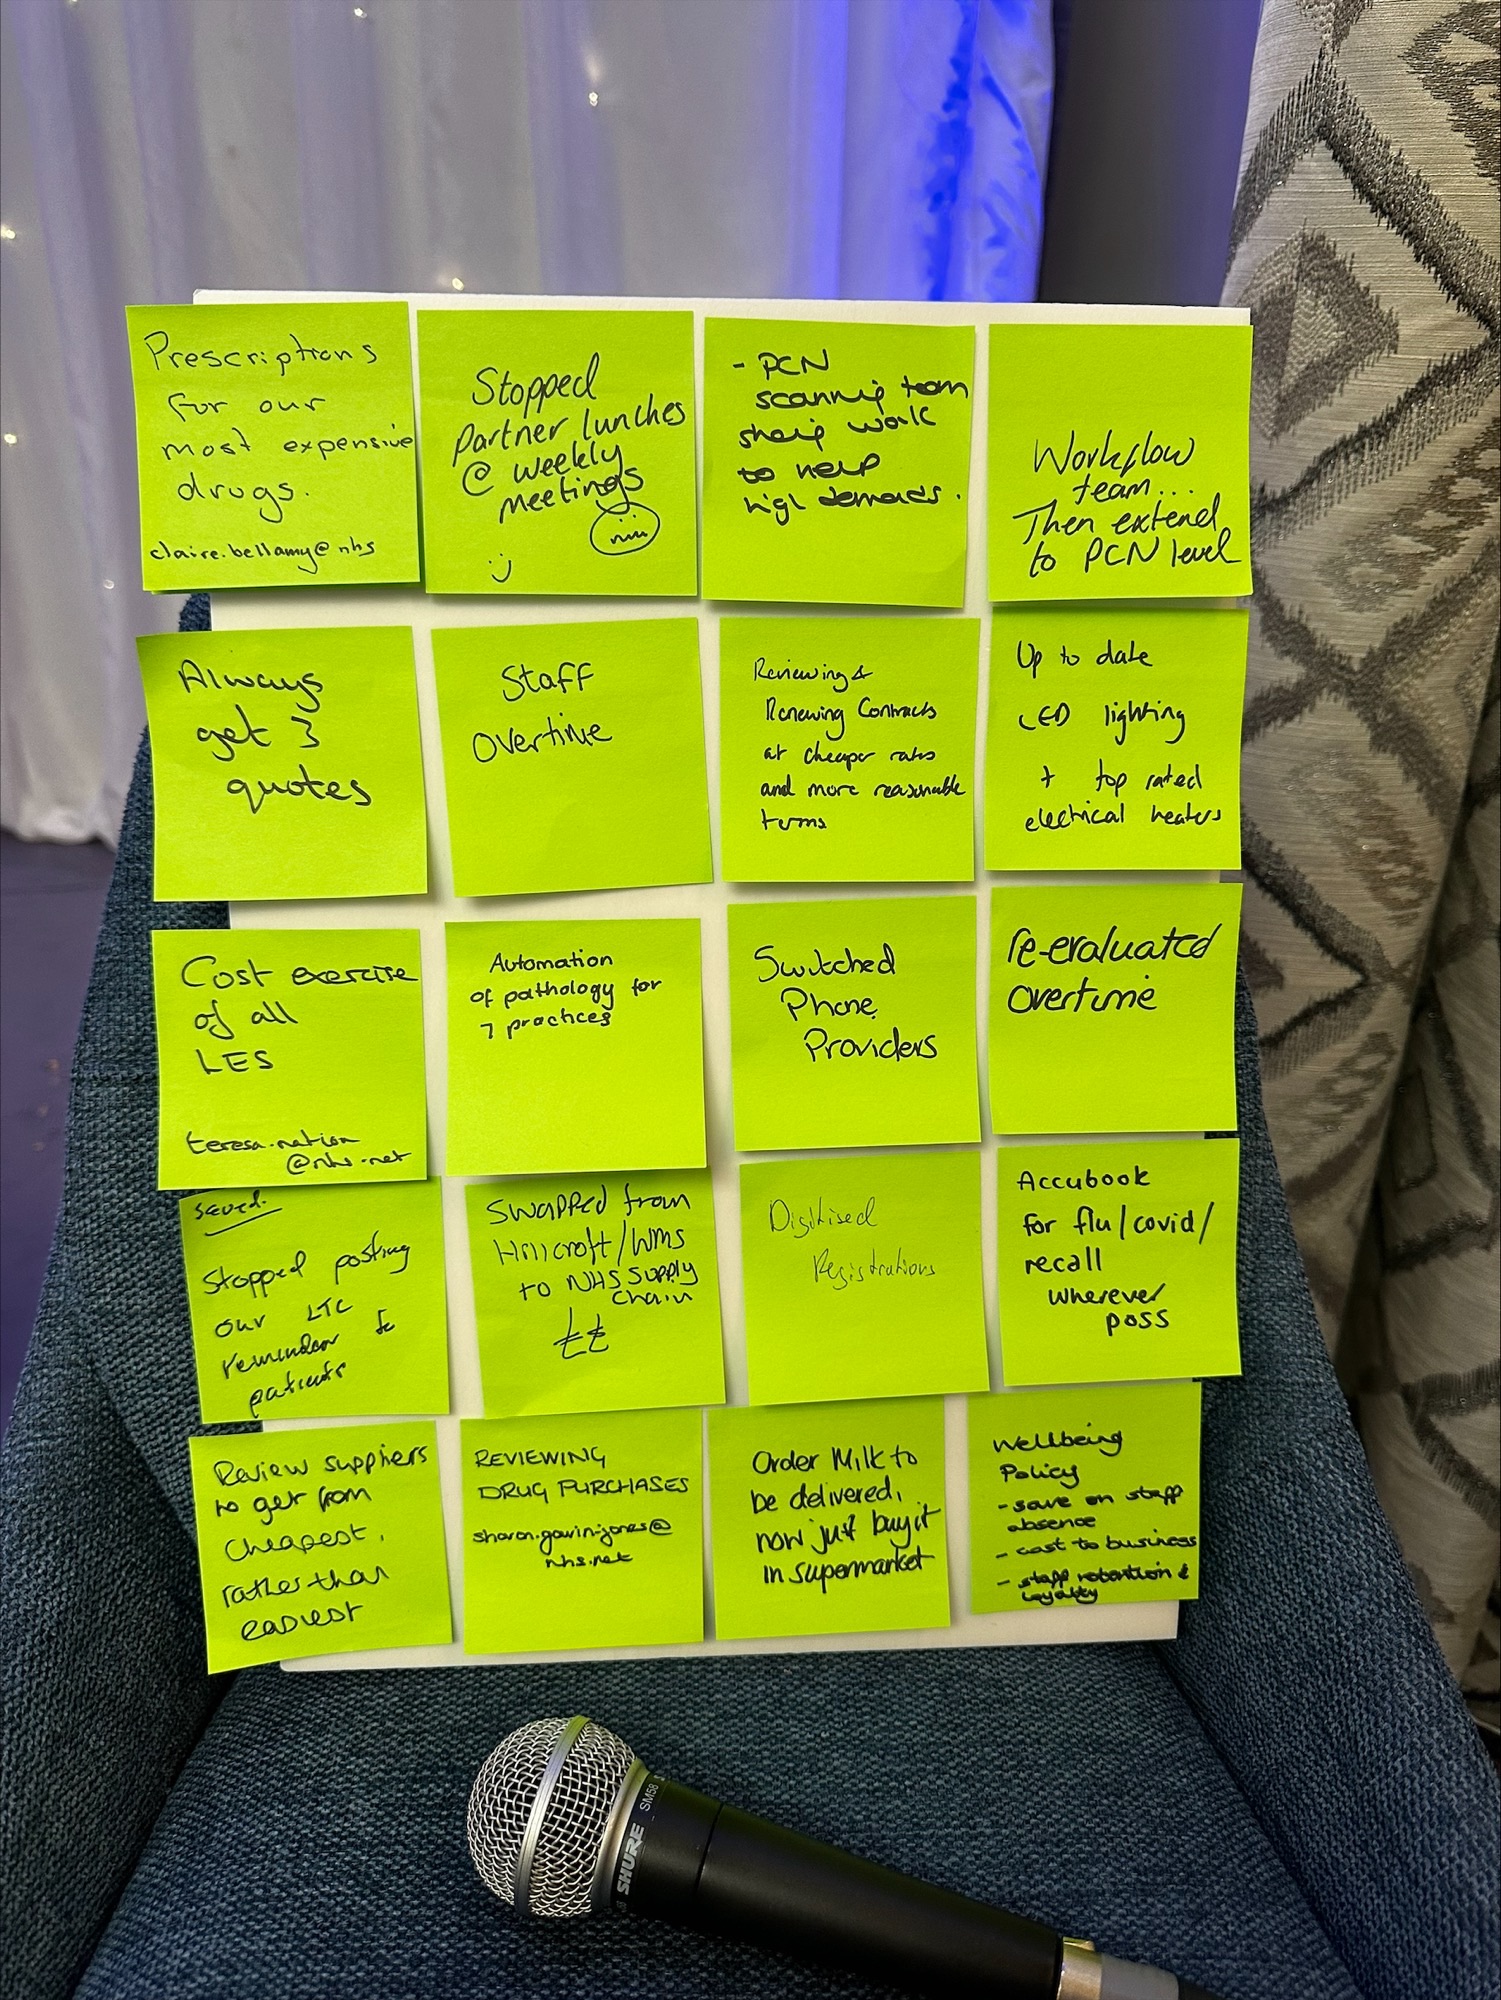 Prescriptions
for our
most expensive
drugs.
claire.bellamy@nhs
Stopped
partner lunches
@ weekly
meetings
:)
- PCN
scanning team
sharing work
to help
high demands.
Workflow
team...
Then extend
to PCN level
Always
get 3
quotes
Staff
overtime
Reviewing &
Renewing Contracts
at cheaper rates
and more reasonable
terms
Up to date
LED lighting
+ top rated
electrical heaters
Cost exercise
of all
LES
teresa.nation
@nhs.net
Automation
of pathology for
7 practices
Switched
Phone
Providers
re-evaluated
overtime
Saved.
Stopped posting
our LTC
reminder to
patients
Swapped from
Hillcroft/WMS
to NHS Supply
Chain
££
Digitised
Registrations
Accubook
for flu/covid/
recall
wherever
poss
Review suppliers
to get from
cheapest,
rather than
easiest
REVIEWING
DRUG PURCHASES
sharon.gavin-jones@
nhs.net
Order Milk to
be delivered,
now just buy it
in supermarket
Wellbeing
Policy
- save on staff
absence
- cost to business
- staff retention &
loyalty
SHURE SM58